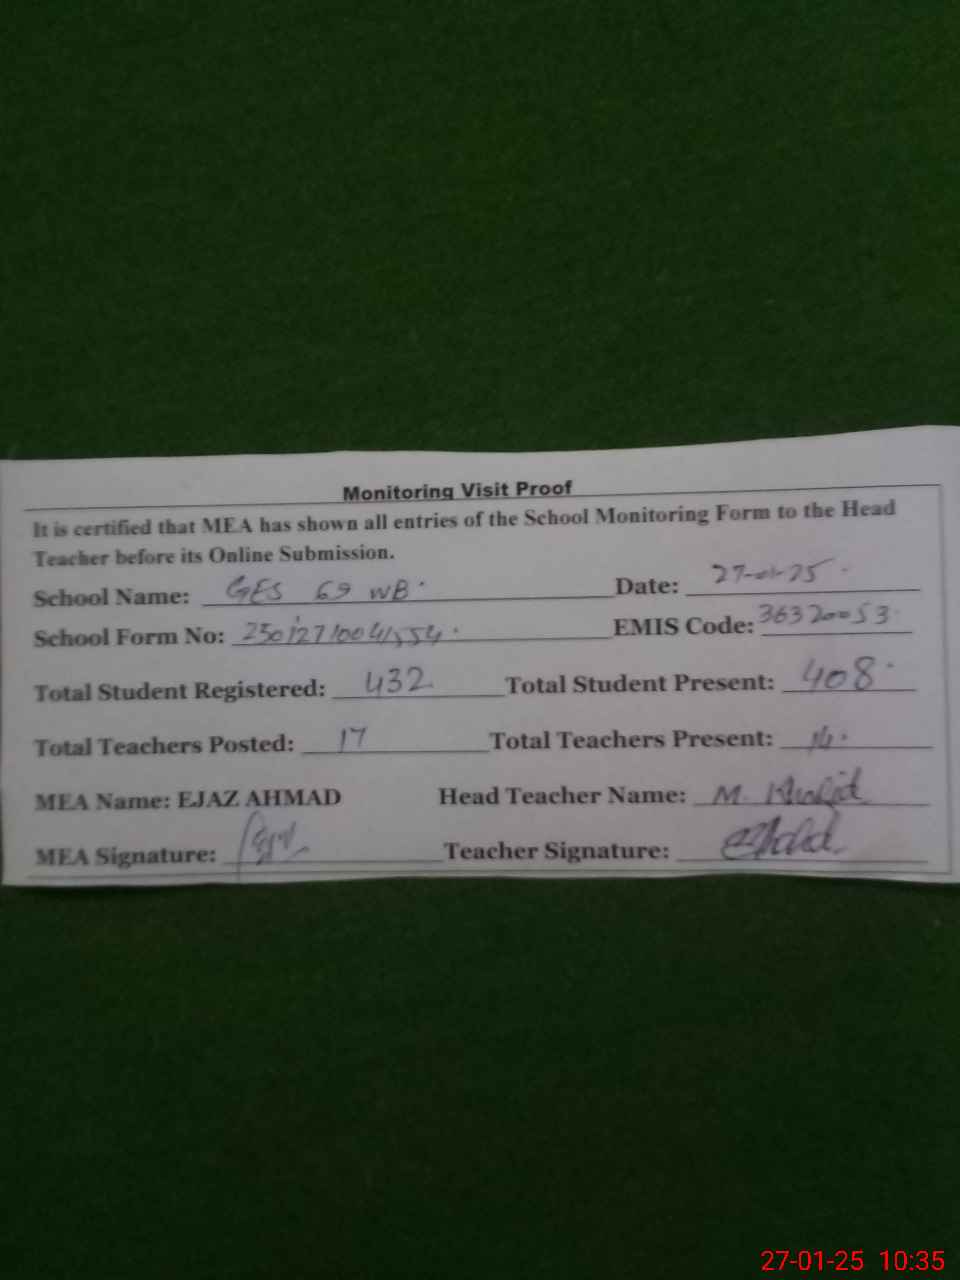 Monitoring Visit Proof
It is certified that MEA has shown all entries of the School Monitoring Form to the Head
Teacher before its Online Submission.
School Name: GES 69 WB Date: 27-01-25
School Form No: EMIS Code: 36320053
Total Student Registered: 432 Total Student Present: 408
Total Teachers Posted: 17 Total Teachers Present:
MEA Name: EJAZ AHMAD Head Teacher Name: M. Khalid
MEA Signature: Teacher Signature: Khalid
27-01-25 10:35